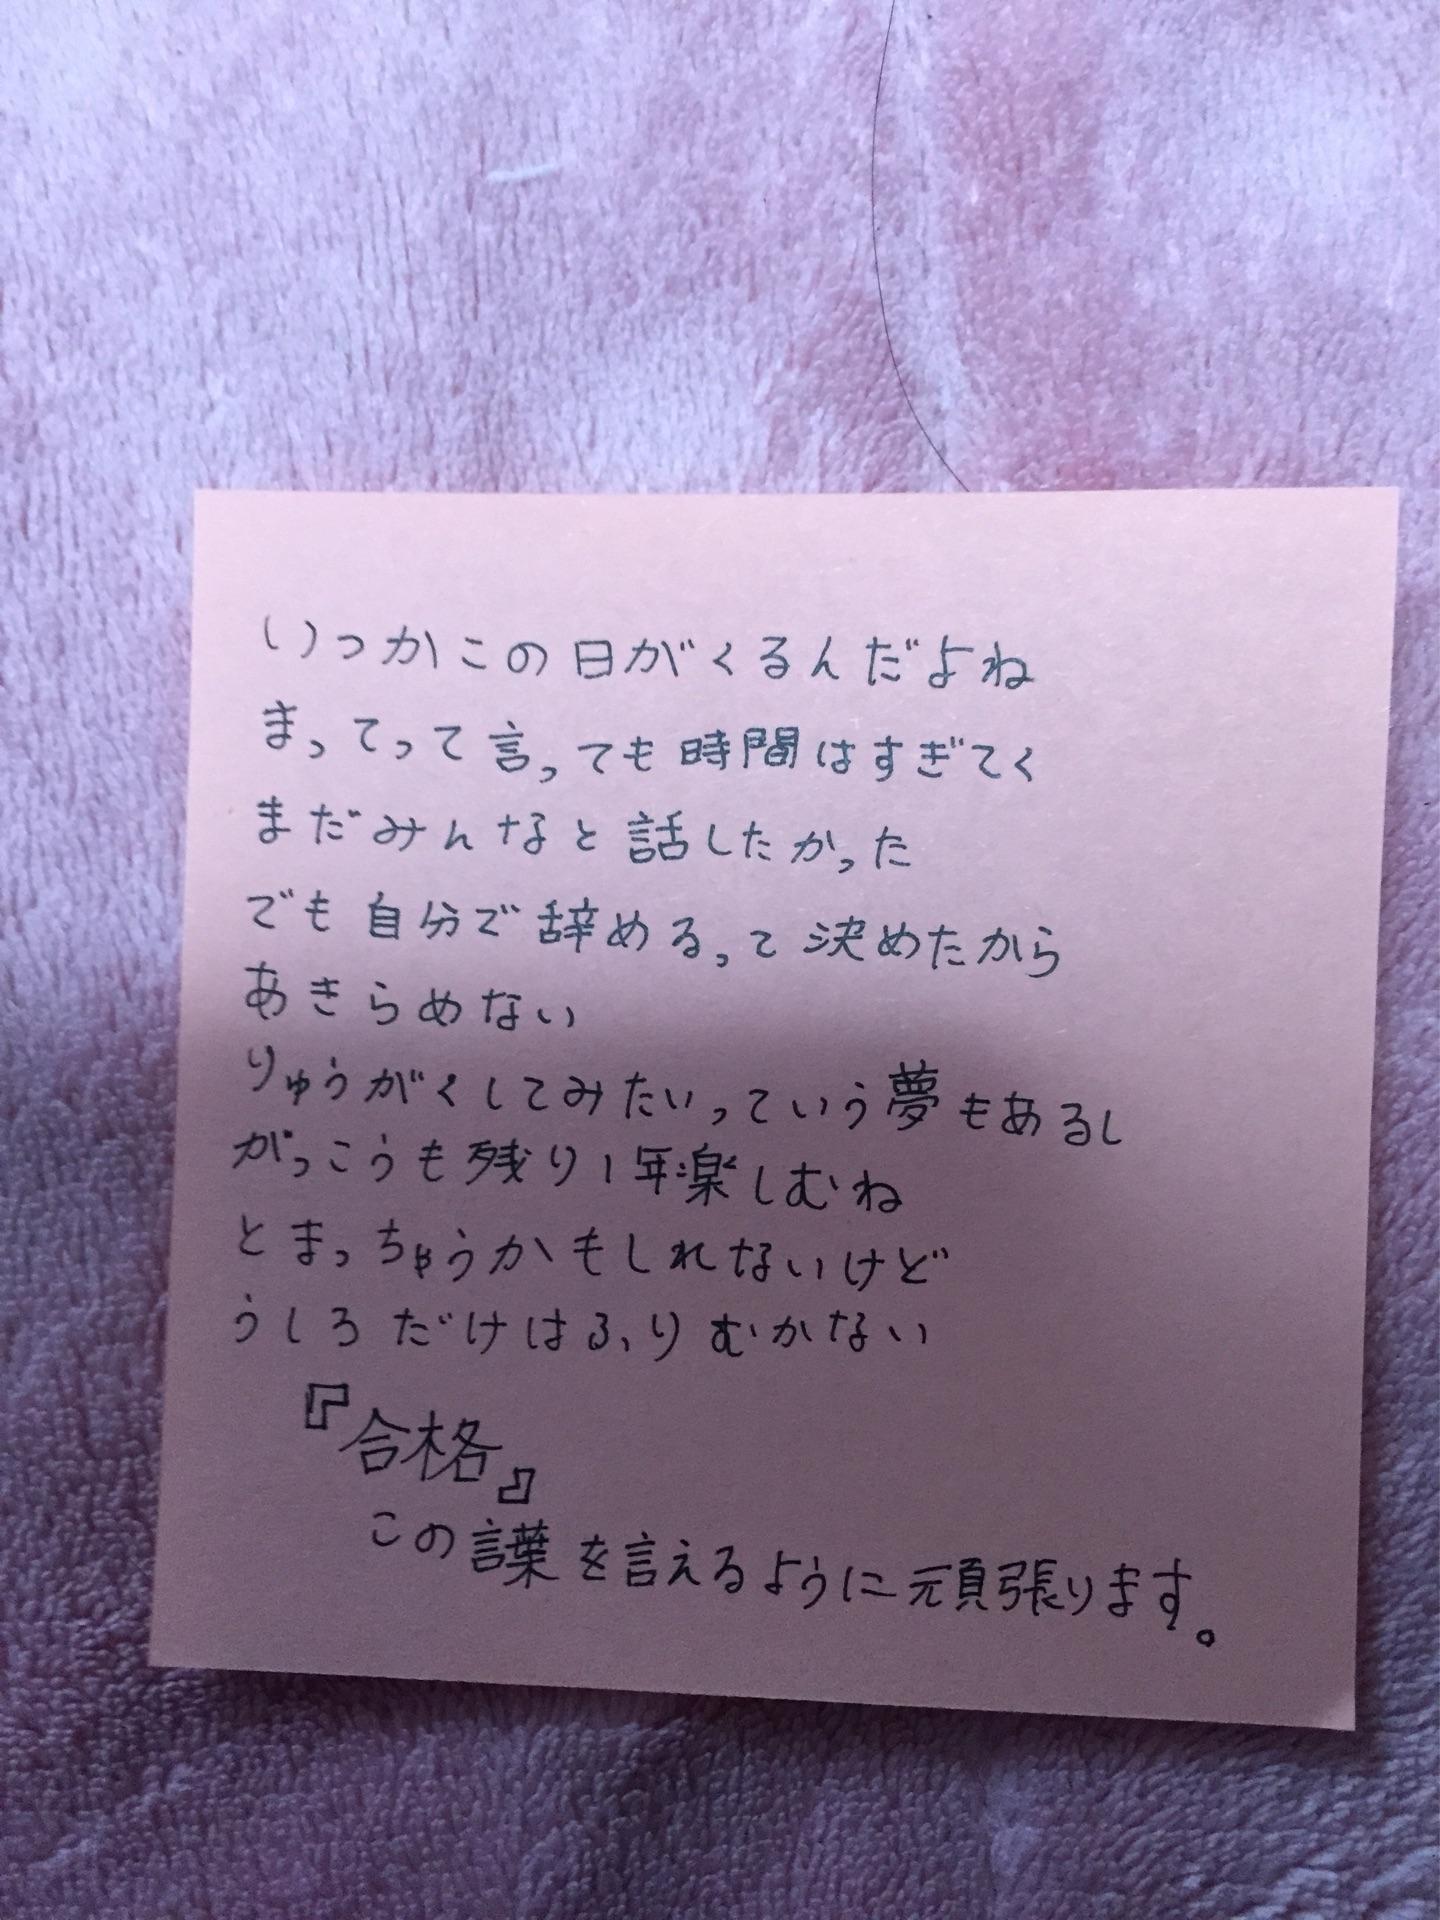 いつかこの日がくるんだよね
まってって言っても時間はすぎてく
まだみんなと話したかった
でも自分で辞めるって決めたから
あきらめない
りゅうがくしてみたいっていう夢もあるし
がっこうも残り1年楽しむね
とまっちゃうかもしれないけど
うしろだけはふりむかない
『合格』
この言葉を言えるように頑張ります。